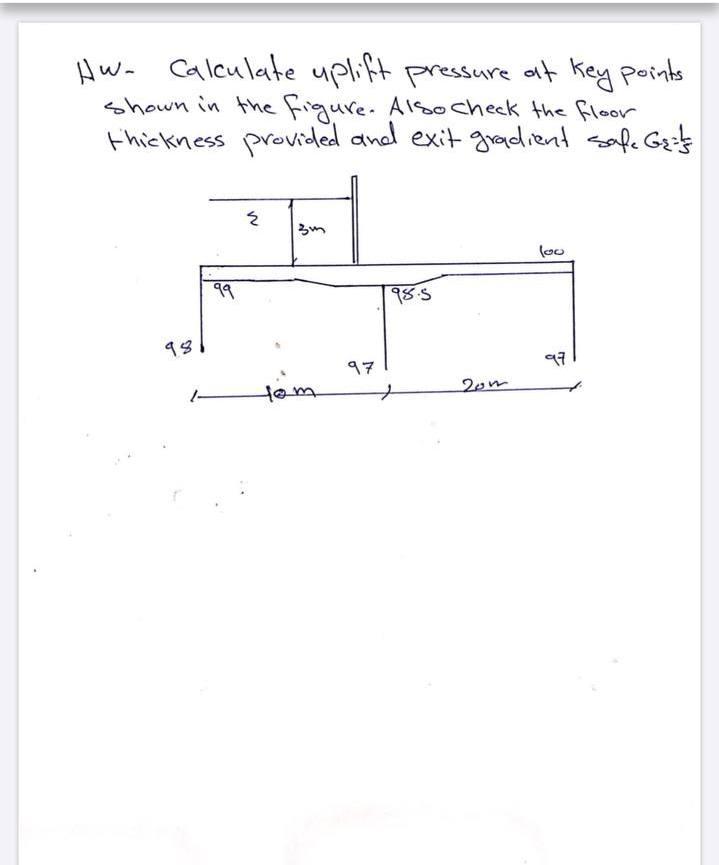 Hw- Calculate uplift pressure at key points
shown in the figure. Also check the floor
thickness provided and exit gradient safe GE=1/5
3m
100
99
98.5
98
97
97
10m
20m